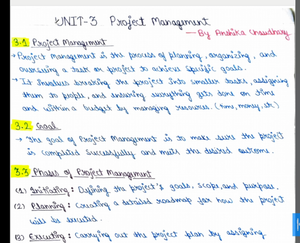 UNIT-3 Project Management
- By Anshika Chaudhary
3.1 Project Management
• Project Management is the process of planning, organizing, and
overseeing a task or project to achieve specific goals.
• It involves breaking the project into smaller tasks, assigning
them to people, and ensuring everything gets done on time
and within a budget by managing resources (time, money, etc)
3.2 Goal
→ The goal of Project Management is to make sure the project
is completed successfully and meets the desired outcome.
3.3 Phases of Project Management
(1) Initiating: Defining the project's goals, scope, and purpose.
(2) Planning: Creating a detailed roadmap for how the project
will be executed.
(3) Executing: Carrying out the project plan by assigning